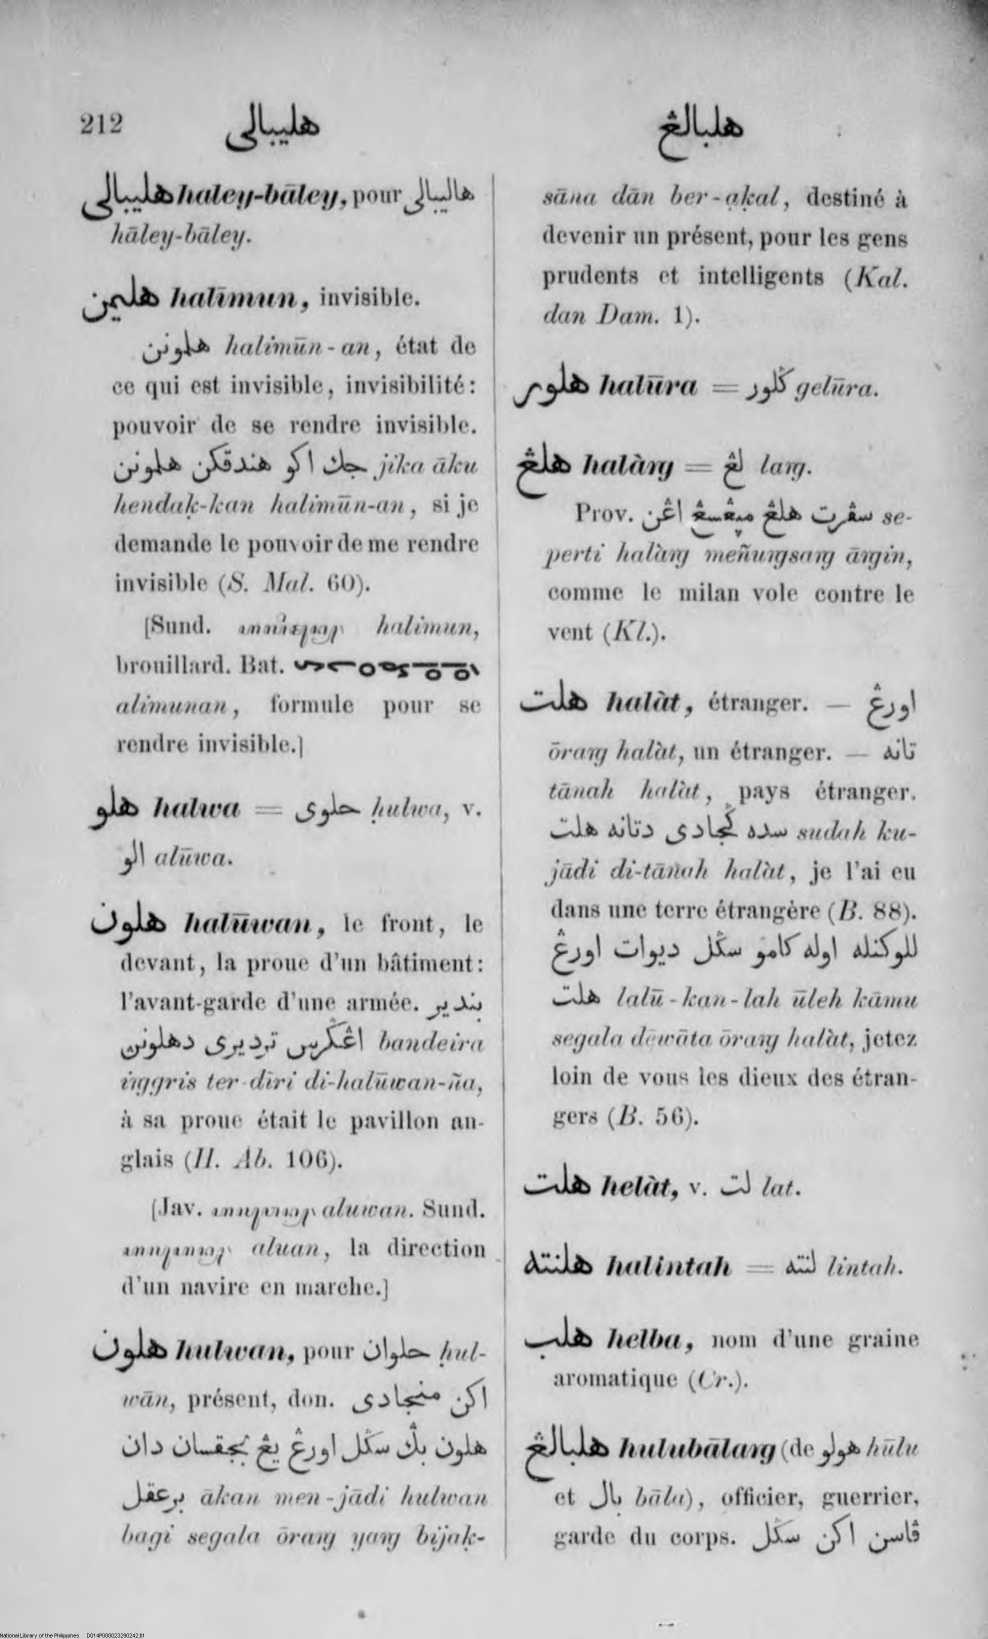 212 هليبالي
هلبالڠ
هليبالي haley-bāley, pour هاليبالي
hāley-bāley.
هليمن halīmun, invisible.
هلمونن halimūn-an, état de
ce qui est invisible, invisibilité:
pouvoir de se rendre invisible.
جك اكو هندقكن هلمونن jika āku
hendaḳ-kan halimūn-an, si je
demande le pouvoir de me rendre
invisible (S. Mal. 60).
[Sund. halimun,
brouillard. Bat.
alimunan, formule pour se
rendre invisible.]
هلو halwa = حلوى ḥulwa, v.
الو alūwa.
هلون halūwan, le front, le
devant, la proue d'un bâtiment:
l'avant-garde d'une armée. بندير
اڠݢرس ترديري دهلونن bandeira
inggris ter-dīri di-halūwan-ña,
à sa proue était le pavillon an-
glais (H. Ab. 106).
[Jav. aluwan. Sund.
aluan, la direction
d'un navire en marche.]
هلون hulwan, pour حلوان ḥul-
wān, présent, don. اكن منجادي
هلون بݢ سݢل اورڠ يڠ بجقسان دان
برعقل ākan men-jādi hulwan
bagi segala ōraŋ yaŋ bijaḳ-
sāna dān ber-aḳal, destiné à
devenir un présent, pour les gens
prudents et intelligents (Kal.
dan Dam. 1).
هلور halūra = ݢلور gelūra.
هلڠ halàŋ = لڠ laŋ.
Prov. سڤرت هلڠ مڽڠسڠ اڠن se-
perti halàŋ meñuŋsaŋ āŋin,
comme le milan vole contre le
vent (Kl.).
هلت halàt, étranger. — اورڠ
ōraŋ halàt, un étranger. — تانه
tānah halàt, pays étranger.
سده كجادي دتانه هلت sudah ku-
jādi di-tānah halàt, je l'ai eu
dans une terre étrangère (B. 88).
للوكنله اوله كامو سݢل ديوات اورڠ
هلت lalū-kan-lah ūleh kāmu
segala dēwāta ōraŋ halàt, jetez
loin de vous les dieux des étran-
gers (B. 56).
هلت helàt, v. لت lat.
هلنته halintah = لنته lintah.
هلب helba, nom d'une graine
aromatique (Cr.).
هلبالڠ hulubālaŋ (de هولو hūlu
et بال bāla), officier, guerrier,
garde du corps. ڤاسن اكن سݢل
National Library of the Philippines